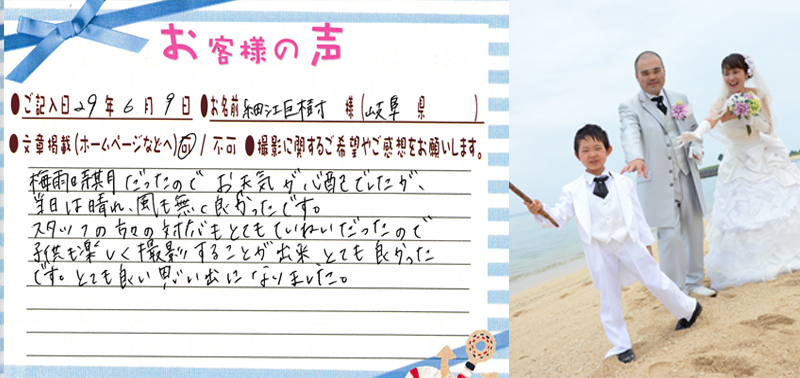 お客様の声
●ご記入日29年6月9日●お名前 細江巨樹 様(岐阜 県 )
●文章掲載(ホームページなどへ)可/不可 ●撮影に関するご希望やご感想をお願いします。
梅雨時期だったので お天気が心配でしたが、
当日は晴れ、風も無く良かったです。
スタッフの方々の対応もとてもていねいだったので
子供も楽しく撮影することが出来とても良かった
です。とても良い思い出になりました。